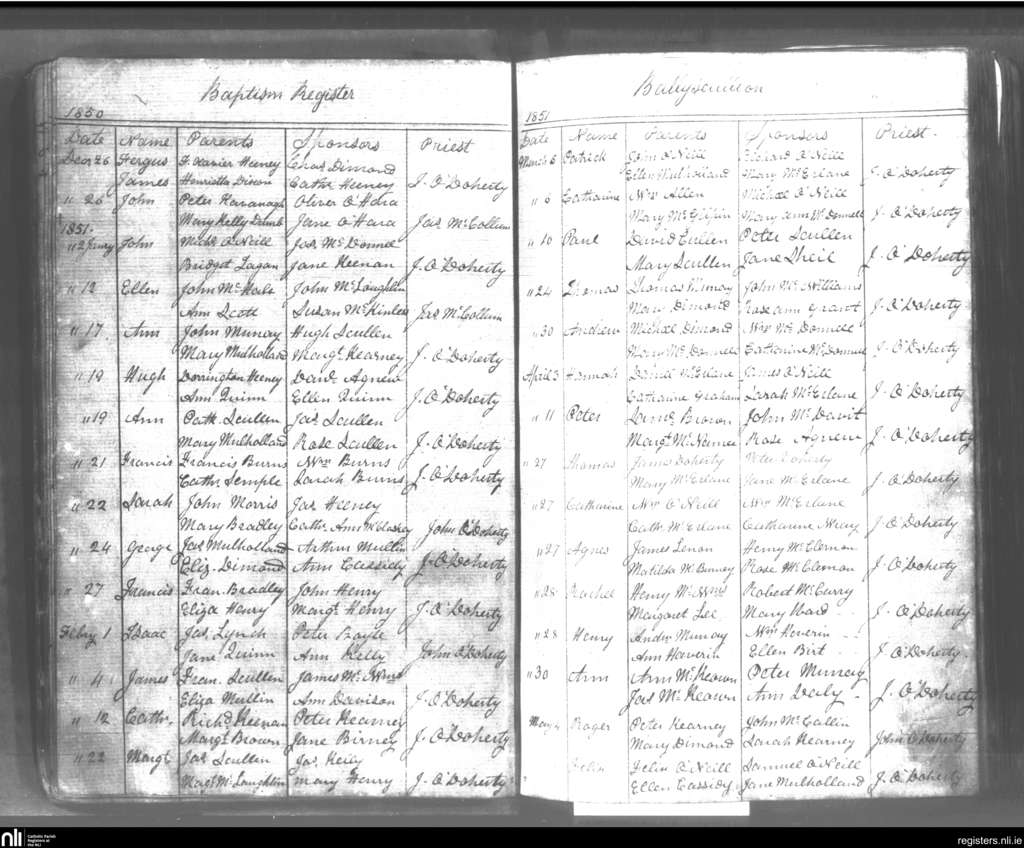 Baptism Register
1850
Date Name Parents Sponsors Priest
Decr 26 Fergus F. Xavier Heney Chas Dimond
James Henrietta Dixon Cathr Heeney J. O'Doherty
" 26 John Peter Kavanagh Oliver O'Hara
Mary Kelly Jane O'Hara Jas McCollum
1851.
" 2 Jany John Michl O'Neill Jas McDonnel
Bridget Lagan Jane Keenan J. O'Doherty
" 12 Ellen John McHale John McLoughlin
Ann Scott Susan McKinless Jas McCollum
" 17. Ann John Murray Hugh Scullen
Mary Mulholland Margt Kearney J. O'Doherty
" 19 Hugh Dorrington Heeney David Agnew
Ann Quinn Ellen Quinn J. O'Doherty
" 19 Ann Patk. Scullen Jas Scullen
Mary Mulholland Rose Scullen J. O'Doherty
" 21 Francis Francis Burns Wm Burns
Cathr Semple Sarah Burns J. O'Doherty
" 22 Sarah John Morris Jas Heeney
Mary Bradley Cathr Ann McCloskey John O'Doherty
" 24 George Jas Mulholland Arthur Mullin
Eliz. Dimond Ann Cassidy J. O'Doherty
" 27 Francis Fran. Bradley John Henry
Eliza Henry Margt Henry J. O'Doherty
Feby 1 Isaac Jas. Lynch Peter Boyle
Jane Quinn Ann Kelly John O'Doherty
" 4 James Fran. Scullen James McWms
Eliza Mullin Ann Davison J. O'Doherty
" 12 Cathr. Richd Keenan Peter Kearney
Margt Brown Jane Birney J. O'Doherty
" 22 Margt Jas Scullen Jas. Kelly
Margt McLaughlin Mary Henry J. O'Doherty
Ballyscullion
1851
Date Name Parents Sponsors Priest.
March 6 Patrick John O'Neill Richard O'Neill
Ellen Mulholland Mary McErlane J. O'Doherty
" 6 Catharine Wm Allen Michael O'Neill
Mary Mary Ann McDonnell J. O'Doherty
" 16 Paul David Cullen Peter Scullen
Mary Scullen Jane Sheil J. O'Doherty
" 24 Thomas Thomas Murray John McWilliams
Mary Dimond Rose ann Grant J. O'Doherty
" 30 Andrew Michael Dimond Wm McDonnell
Mary McDonnell Catharine McDonnell J. O'Doherty
April 3 Hannah Daniel McErlane James O'Neill
Catherine Graham Sarah McErlane J. O'Doherty
" 11 Peter Brown John McDavit
Margt McNamee Rose Agnew J. O'Doherty
" 27 Thomas James Doherty Peter Doherty
Mary McErlane Jane McErlane J. O'Doherty
" 27 Catharine Wm O'Neill Wm McErlane
Cath. McErlane Catharine J. O'Doherty
" 27 Agnes James Lenon Henry McClernon
Matilda McBurney Rose McClernan J. O'Doherty
" 28 Rachel Henry McWms Robert McCurry
Margaret Lee Mary Ward J. O'Doherty
" 28 Henry Andw Murray Wm Heverin
Ann Heverin Ellen Birt J. O'Doherty
" 30 Ann Ann McKeown Peter Murray
Jas McKeown Ann Daly J. O'Doherty
May 4 Roger Peter Kearney John McCallin
Mary Dimond Sarah Kearney John O'Doherty
Felix Felix O'Neill Samuel O'Neill
Ellen Cassidy Jane Mulholland J. O'Doherty
nli Catholic Parish Registers at the NLI
registers.nli.ie